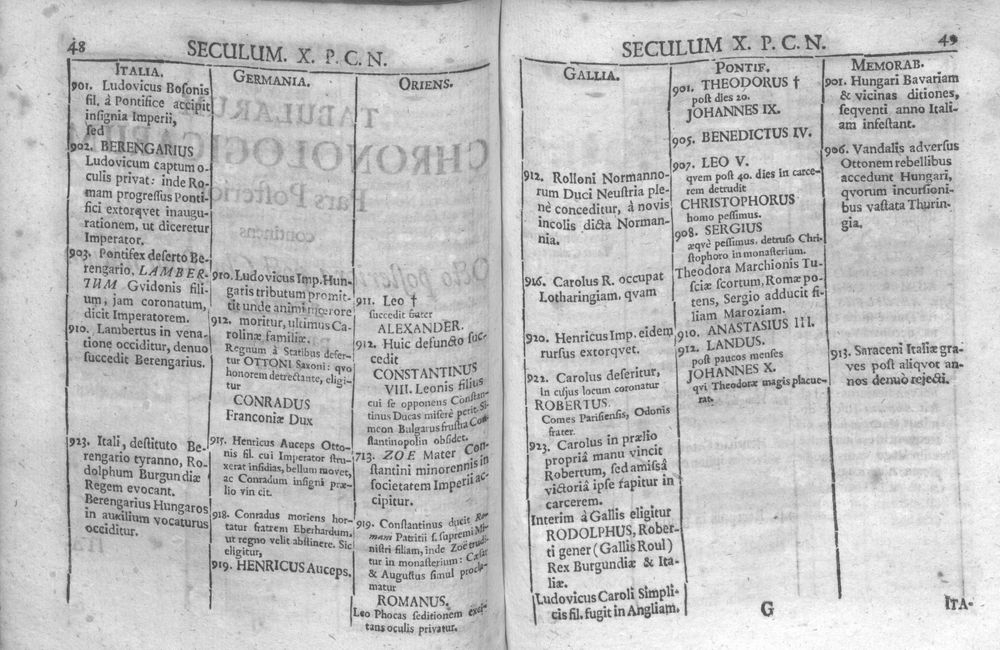 48
SECULUM. X. P. C. N.
ITALIA.
901. Ludovicus Bosonis
fil. à Pontifice accipit
insignia Imperii,
sed
902. BERENGARIUS
Ludovicum captum o-
culis privat: inde Ro-
mam progressus Ponti-
fici extorqvet inaugu-
rationem, ut diceretur
Imperator.
903. Pontifex deserto Be-
rengario, LAMBER-
TUM Gvidonis fili-
um, jam coronatum,
dicit Imperatorem.
910. Lambertus in vena-
tione occiditur, denuo
succedit Berengarius.
923. Itali, destituto Be-
rengario tyranno, Ro-
dolphum Burgundiæ
Regem evocant.
Berengarius Hungaros
in auxilium vocaturus
occiditur.
GERMANIA.
910. Ludovicus Imp. Hun-
garis tributum promit-
tit unde animi mœrore
912. moritur, ultimus Ca-
rolinæ familiæ.
Regnum à Statibus defer-
tur OTTONI Saxoni: qvo
honorem detrectante, eligi-
tur
CONRADUS
Franconiæ Dux
915. Henricus Auceps Otto-
nis fil. cui Imperator stru-
xerat insidias, bellum movet,
ac Conradum insigni præ-
lio vincit.
918. Conradus moriens hor-
tatur fratrem Eberhardum,
ut regno velit abstinere. Sic
eligitur,
919. HENRICUS Auceps.
ORIENS.
911. Leo †
succedit frater
ALEXANDER.
912. Huic defuncto suc-
cedit
CONSTANTINUS
VIII. Leonis filius
cui se opponens Constan-
tinus Ducas miserè perit. Si-
meon Bulgarus frustra Con-
stantinopolin obsidet.
713. ZOE Mater Con-
stantini minorennis in
societatem Imperii ac-
cipitur.
919. Constantinus ducit Ro-
mani Patritii s. supremi Mi-
nistri filiam, inde Zoë trudi-
tur in monasterium: Cæsar
& Augustus simul procla-
matur
ROMANUS.
Leo Phocas seditionem exci-
tans oculis privatur.
49
SECULUM X. P. C. N.
GALLIA.
912. Rolloni Normanno-
rum Duci Neustria ple-
nè conceditur, à novis
incolis dicta Norman-
nia.
916. Carolus R. occupat
Lotharingiam, qvam
920. Henricus Imp. eidem
rursus extorqvet.
922. Carolus deseritur,
in cujus locum coronatur
ROBERTUS.
Comes Parisiensis, Odonis
frater.
923. Carolus in prælio
propriâ manu vincit
Robertum, sed amissâ
victoriâ ipse rapitur in
carcerem.
Interim à Gallis eligitur
RODOLPHUS, Rober-
ti gener (Gallis Roul)
Rex Burgundiæ & Ita-
liæ.
Ludovicus Caroli Simpli-
cis fil. fugit in Angliam.
PONTIF.
901. THEODORUS †
post dies 20.
JOHANNES IX.
905. BENEDICTUS IV.
907. LEO V.
qvem post 40. dies in carce-
rem detrudit
CHRISTOPHORUS
homo pessimus.
908. SERGIUS
æqvè pessimus, detruso Chri-
stophoro in monasterium.
Theodora Marchionis Tu-
sciæ scortum, Romæ po-
tens, Sergio adducit fi-
liam Maroziam.
910. ANASTASIUS III.
912. LANDUS.
post paucos menses
JOHANNES X.
qvi Theodoræ magis placue-
rat.
MEMORAB.
901. Hungari Bavariam
& vicinas ditiones,
seqventi anno Itali-
am infestant.
906. Vandalis adversus
Ottonem rebellibus
accedunt Hungari,
qvorum incursioni-
bus vastata Thurin-
gia.
913. Saraceni Italiæ gra-
ves post aliqvot an-
nos denuò rejecti.
G
ITA-